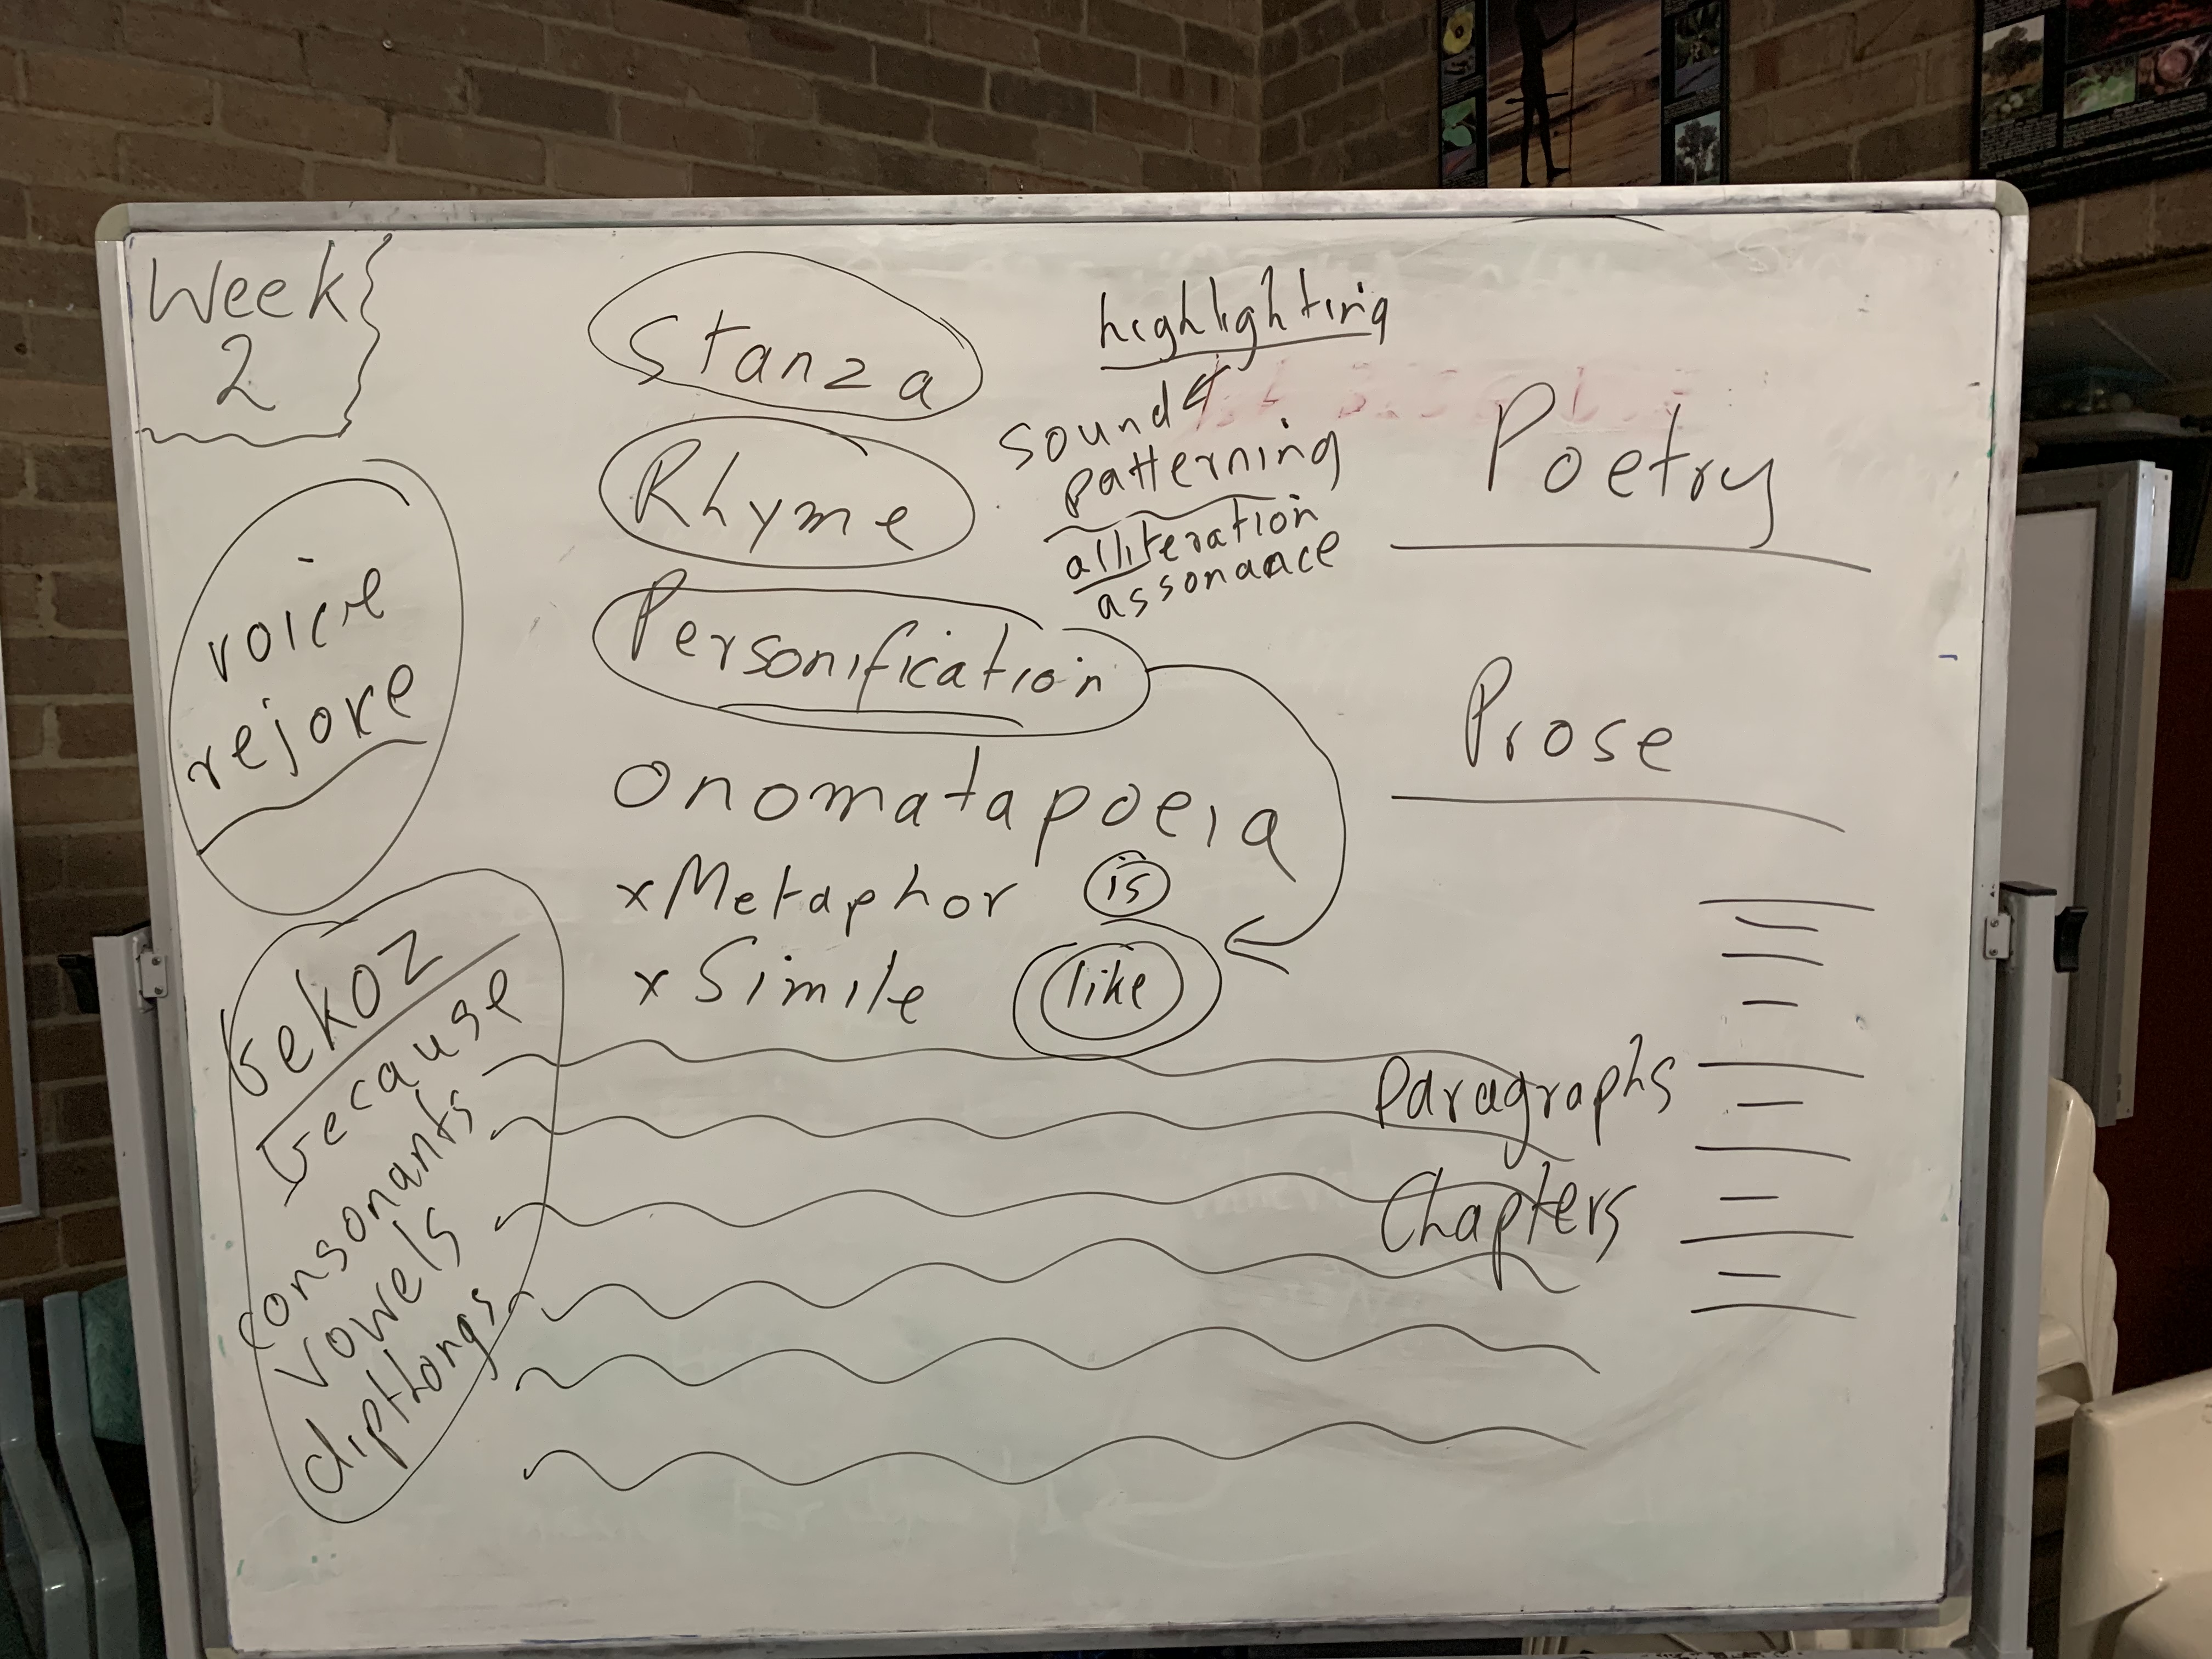 Week
2
Stanza
Rhyme
Personification
Onomatapoeia
x Metaphor is
x Simile like
highlighting
sound
patterning
alliteration
assonance
Poetry
Prose
Paragraphs
Chapters
voice
rejoice
bekoz
because
consonants
vowels
dipthongs